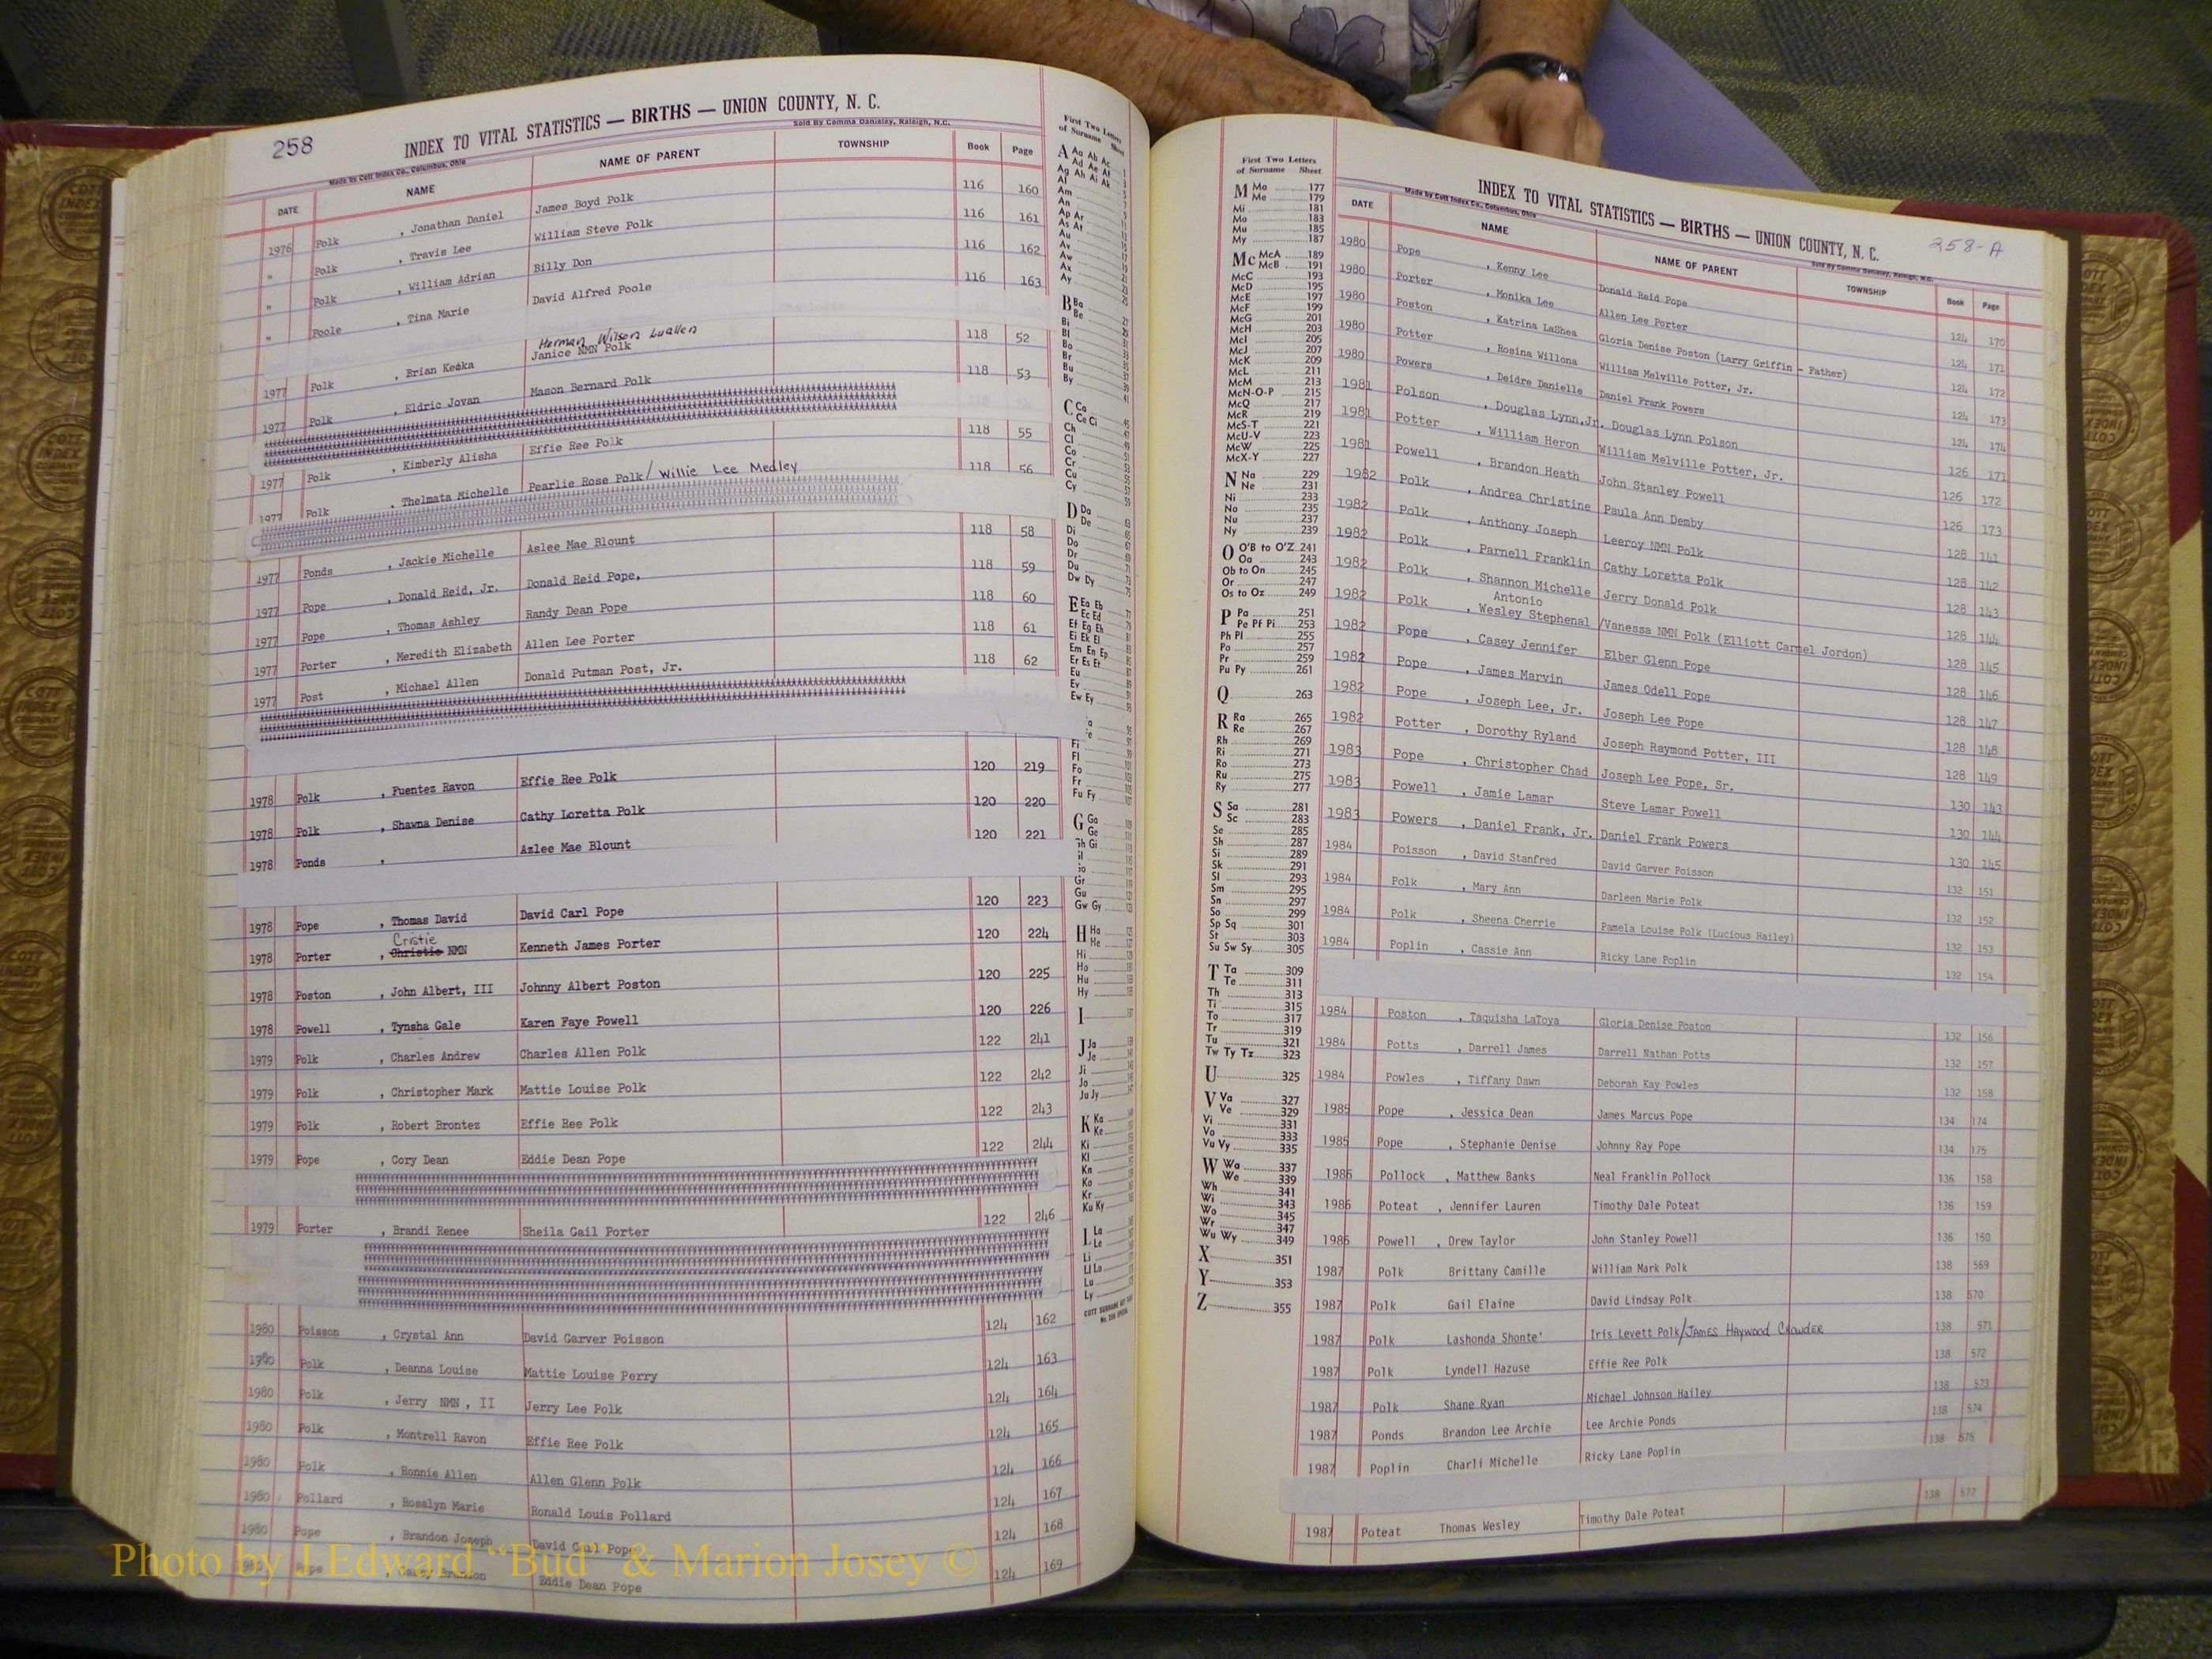 258
INDEX TO VITAL STATISTICS — BIRTHS — UNION COUNTY, N. C.
Made by Cott Index Co., Columbus, Ohio
DATE NAME NAME OF PARENT TOWNSHIP Book Page
1976 Polk , Jonathan Daniel James Boyd Polk 116 160
" Polk , Travis Lee William Steve Polk 116 161
" Polk , William Adrian Billy Don 116 162
" Poole , Tina Marie David Alfred Poole 116 163
Herman Wilson Luallen
1977 Polk , Brian Janice NMN Polk 118 52
1977 Polk , Eldric Jovan Mason Bernard Polk 118 53
1977 Polk , Kimberly Alisha Effie Ree Polk 118 55
1977 Polk , Thelmata Michelle Pearlie Rose Polk/ Willie Lee Medley 118 56
1977 Ponds , Jackie Michelle Aslee Mae Blount 118 58
1977 Pope , Donald Reid, Jr. Donald Reid Pope, 118 59
1977 Pope , Thomas Ashley Randy Dean Pope 118 60
1977 Porter , Meredith Elizabeth Allen Lee Porter 118 61
1977 Post , Michael Allen Donald Putman Post, Jr. 118 62
1978 Polk , Fuentez Ravon Effie Ree Polk 120 219
1978 Polk , Shawna Denise Cathy Loretta Polk 120 220
1978 Ponds , Azlee Mae Blount 120 221
1978 Pope , Thomas David David Carl Pope 120 223
Cristie
1978 Porter , Christie NMN Kenneth James Porter 120 224
1978 Poston , John Albert, III Johnny Albert Poston 120 225
1978 Powell , Tynsha Gale Karen Faye Powell 120 226
1979 Polk , Charles Andrew Charles Allen Polk 122 241
1979 Polk , Christopher Mark Mattie Louise Polk 122 242
1979 Polk , Robert Brontez Effie Ree Polk 122 243
1979 Pope , Cory Dean Eddie Dean Pope 122 244
1979 Porter , Brandi Renee Sheila Gail Porter 122 246
1980 Poisson , Crystal Ann David Garver Poisson 124 162
1980 Polk , Deanna Louise Mattie Louise Perry 124 163
1980 Polk , Jerry NMN , II Jerry Lee Polk 124 164
1980 Polk , Montrell Ravon Effie Ree Polk 124 165
1980 Polk , Ronnie Allen Allen Glenn Polk 124 166
1980 Pollard , Rosalyn Marie Ronald Louis Pollard 124 167
1980 Pope , Brandon Joseph David Carl Pope 124 168
Pope Eddie Dean Pope 124 169
First Two Letters
of Surname Sheet
M Ma 177
Me 179
Mi 181
Mo 183
Mu 185
My 187
Mc McA 189
McB 191
McC 193
McD 195
McE 197
McF 199
McG 201
McH 203
McI 205
McJ 207
McK 209
McL 211
McM 213
McN-O-P 215
McQ 217
McR 219
McS-T 221
McU-V 223
McW 225
McX-Y 227
N Na 229
Ne 231
Ni 233
No 235
Nu 237
Ny 239
O O'B to O'Z 241
Oa 243
Ob to On 245
Or 247
Os to Oz 249
P Pa 251
Pe Pf Pi 253
Ph Pl 255
Po 257
Pr 259
Pu Py 261
Q 263
R Ra 265
Re 267
Rh 269
Ri 271
Ro 273
Ru 275
Ry 277
S Sa 281
Sc 283
Se 285
Sh 287
Si 289
Sk 291
Sl 293
Sm 295
Sn 297
So 299
Sp Sq 301
St 303
Su Sw Sy 305
T Ta 309
Te 311
Th 313
Ti 315
To 317
Tr 319
Tu 321
Tw Ty Tz 323
U 325
V Va 327
Ve 329
Vi 331
Vo 333
Vu Vy 335
W Wa 337
We 339
Wh 341
Wi 343
Wo 345
Wr 347
Wu Wy 349
X 351
Y 353
Z 355
258-A
INDEX TO VITAL STATISTICS — BIRTHS — UNION COUNTY, N. C.
Made by Cott Index Co., Columbus, Ohio
DATE NAME NAME OF PARENT TOWNSHIP Book Page
1980 Pope , Kenny Lee Donald Reid Pope 124 170
1980 Porter , Monika Lee Allen Lee Porter 124 171
1980 Poston , Katrina LaShea Gloria Denise Poston (Larry Griffin - Father) 124 172
1980 Potter , Rosina Willona William Melville Potter, Jr. 124 173
1980 Powers , Deidre Danielle Daniel Frank Powers 124 174
1981 Polson , Douglas Lynn,Jr. Douglas Lynn Polson 126 171
1981 Potter , William Heron William Melville Potter, Jr. 126 172
1981 Powell , Brandon Heath John Stanley Powell 126 173
1982 Polk , Andrea Christine Paula Ann Demby 128 141
1982 Polk , Anthony Joseph Leeroy NMN Polk 128 142
1982 Polk , Parnell Franklin Cathy Loretta Polk 128 143
1982 Polk , Shannon Michelle Jerry Donald Polk 128 144
Antonio
1982 Polk , Wesley Stephenal /Vanessa NMN Polk (Elliott Carmel Jordon) 128 145
1982 Pope , Casey Jennifer Elber Glenn Pope 128 146
1982 Pope , James Marvin James Odell Pope 128 147
1982 Pope , Joseph Lee, Jr. Joseph Lee Pope 128 148
1982 Potter , Dorothy Ryland Joseph Raymond Potter, III 128 149
1983 Pope , Christopher Chad Joseph Lee Pope, Sr. 130 143
1983 Powell , Jamie Lamar Steve Lamar Powell 130 144
1983 Powers , Daniel Frank, Jr. Daniel Frank Powers 130 145
1984 Poisson , David Stanfred David Garver Poisson 132 151
1984 Polk , Mary Ann Darleen Marie Polk 132 152
1984 Polk , Sheena Cherrie Pamela Louise Polk (Lucious Hailey) 132 153
1984 Poplin , Cassie Ann Ricky Lane Poplin 132 154
1984 Poston , Taquisha LaToya Gloria Denise Poston 132 156
1984 Potts , Darrell James Darrell Nathan Potts 132 157
1984 Powles , Tiffany Dawn Deborah Kay Powles 132 158
1985 Pope , Jessica Dean James Marcus Pope 134 174
1985 Pope , Stephanie Denise Johnny Ray Pope 134 175
1986 Pollock , Matthew Banks Neal Franklin Pollock 136 158
1986 Poteat , Jennifer Lauren Timothy Dale Poteat 136 159
1986 Powell , Drew Taylor John Stanley Powell 136 150
1987 Polk Brittany Camille William Mark Polk 138 569
1987 Polk Gail Elaine David Lindsay Polk 138 570
1987 Polk Lashonda Shonte' Iris Levett Polk/JAMES HAYWOOD CROWDER 138 571
1987 Polk Lyndell Hazuse Effie Ree Polk 138 572
1987 Polk Shane Ryan Michael Johnson Hailey 138 573
1987 Ponds Brandon Lee Archie Lee Archie Ponds 138 574
1987 Poplin Charli Michelle Ricky Lane Poplin 138 575
1987 Poteat Thomas Wesley Timothy Dale Poteat 138 577
Photo by J Edward "Bud" & Marion Josey ©